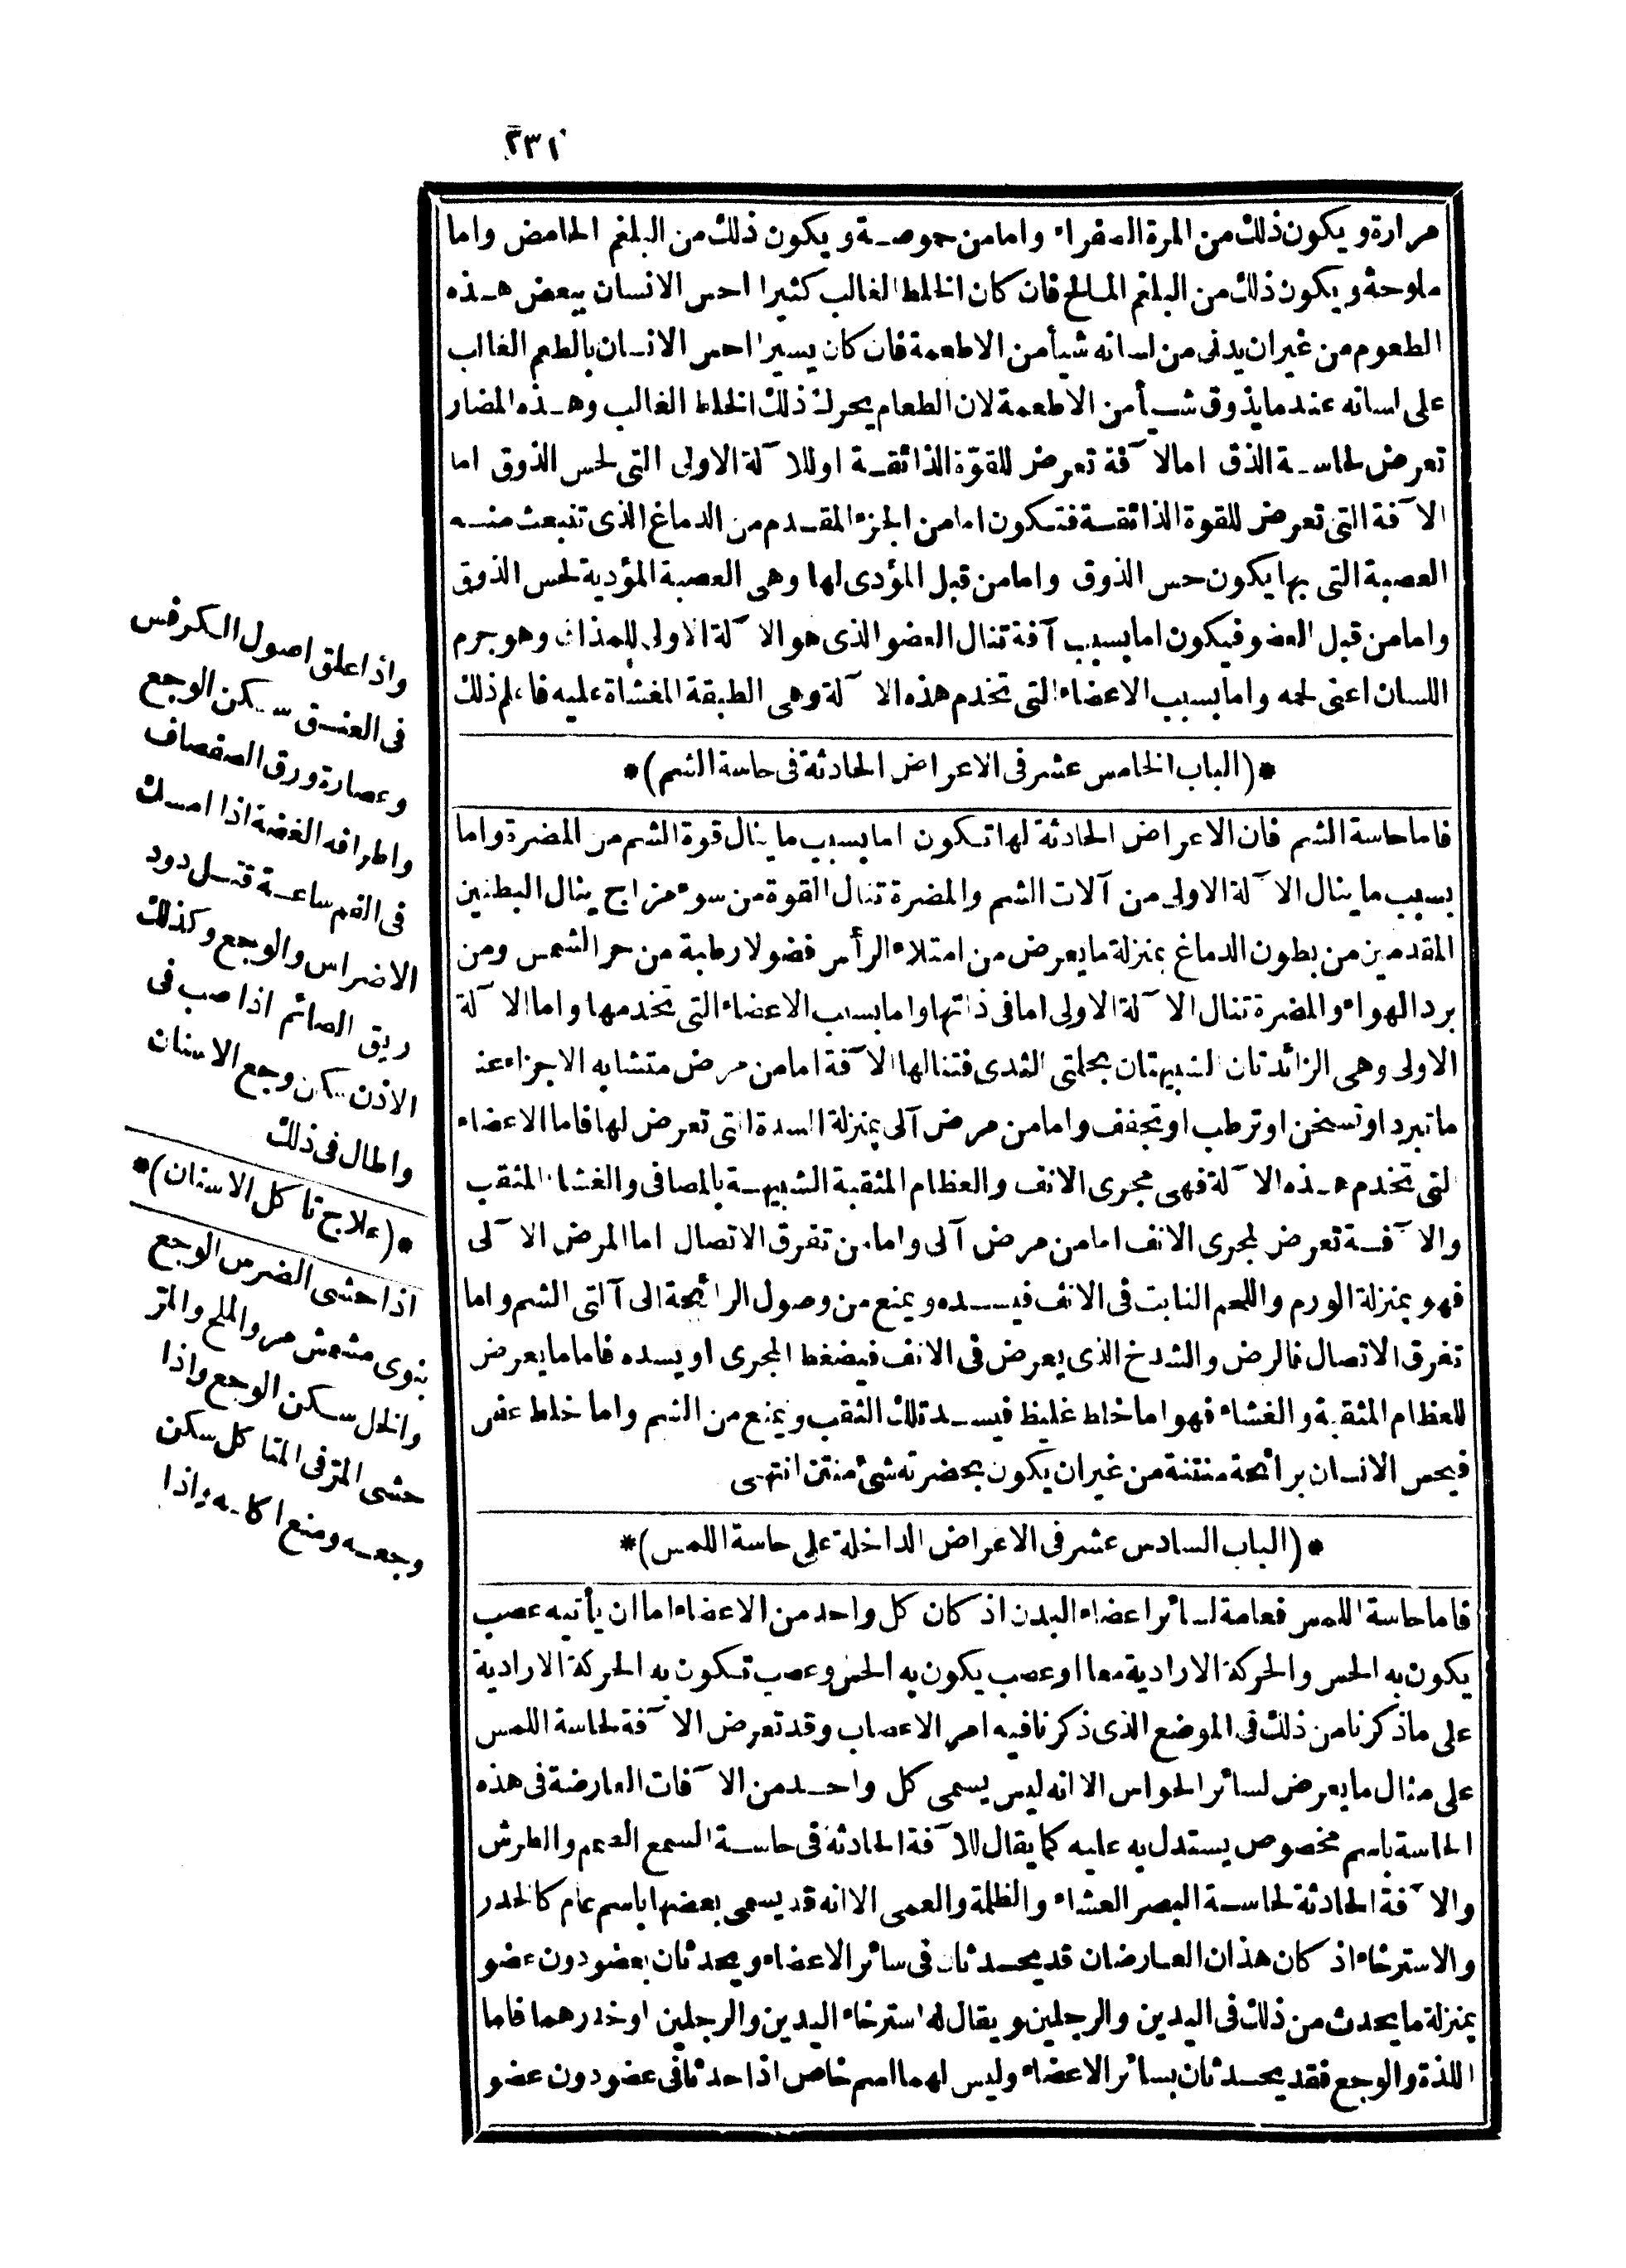 ٢٣١
مرارة ويكون ذلك من المرة الصفراء واما من حموضة ويكون ذلك من البلغم الحامض واما
ملوحة ويكون ذلك من البلغم المالح فان كان الخلط الغالب كثيرا احس الانسان ببعض هذه
الطعوم من غير ان يدنى من لسانه شيأ من الاطعمة فان كان يسيرا احس الانسان بالطعم الغالب
على لسانه عندما يذوق شيأ من الاطعمة لان الطعام يحرك ذلك الخلط الغالب وهذه المضار
تعرض لحاسة الذق اما لآفة تعرض للقوّة الذائقة او للآلة الاولى التى لحس الذوق اما
الآفة التى تعرض للقوة الذائقة فتكون اما من الجزء المقدم من الدماغ الذى تنبعث منه
العصبة التى بها يكون حس الذوق واما من قبل المؤدى لها وهى العصبة المؤدية لحس الذوق
واما من قبل العضو فيكون اما بسبب آفة تنال العضو الذى هو الآلة الاولى للمذاق وهو جرم
اللسان اعنى لحمه واما بسبب الاعضاء التى تخدم هذه الآلة وهى الطبقة المغشاة عليه فاعلم ذلك
*(الباب الخامس عشر فى الاعراض الحادثة فى حاسة الشم)*
فاما حاسة الشم فان الاعراض الحادثة لها تكون اما بسبب ما ينال قوة الشم من المضرة واما
بسبب ما ينال الآلة الاولى من آلات الشم والمضرة تنال القوة من سوء مزاج ينال البطنين
المقدمين من بطون الدماغ بمنزلة ما يعرض من امتلاء الرأس فضولا رطبة من حر الشمس ومن
برد الهواء والمضرة تنال الآلة الاولى اما فى ذاتها واما بسبب الاعضاء التى تخدمها واما الآلة
الاولى وهى الزائدتان الشبيهتان بحلمتى الثدى فتنالها الآفة اما من مرض متشابه الاجزاء عند
ما تبرد او تسخن او ترطب او تجفف واما من مرض آلى بمنزلة السدة التى تعرض لها فاما الاعضاء
التى تخدم هذه الآلة فهى مجرى الانف والعظام المثقبة الشبيهة بالمصافى والغشاء المثقب
والآفة تعرض لمجرى الانف اما من مرض آلى واما من تفرق الاتصال اما المرض الآلى
فهو بمنزلة الورم واللحم النابت فى الانف فيسده ويمنع من وصول الرائحة الى آلتى الشم واما
تفرق الاتصال فالرض والشدخ الذى يعرض فى الانف فيضغط المجرى او يسده فاما ما يعرض
للعظام المثقبة والغشاء فهو اما خلط غليظ فيسد تلك الثقب ويمنع من الشم واما خلط عفن
فيحس الانسان برائحة منتنة من غير ان يكون بحضرته شئ منتن انتهى
*(الباب السادس عشر فى الاعراض الداخلة على حاسة اللمس)*
فاما حاسة اللمس فعامة لسائر اعضاء البدن اذ كان كل واحد من الاعضاء اما ان يأتيه عصب
يكون به الحس والحركة الارادية معا او عصب يكون به الحس وعصب تكون به الحركة الارادية
على ما ذكرنا من ذلك فى الموضع الذى ذكرنا فيه امر الاعصاب وقد تعرض الآفة لحاسة اللمس
على مثال ما يعرض لسائر الحواس الا انه ليس يسمى كل واحد من الآفات العارضة فى هذه
الحاسة باسم مخصوص يستدل به عليه كما يقال للآفة الحادثة فى حاسة السمع الصمم والطرش
والآفة الحادثة لحاسة البصر العشاء والظلمة والعمى الا انه قد يسمى بعضها باسم عام كالخدر
والاسترخاء اذ كان هذان العارضان قد يحدثان فى سائر الاعضاء ويحدثان بعضو دون عضو
بمنزلة ما يحدث من ذلك فى اليدين والرجلين ويقال له استرخاء اليدين والرجلين او خدرهما فاما
اللذة والوجع فقد يحدثان بسائر الاعضاء وليس لهما اسم خاص اذا حدثا فى عضو دون عضو
واذا علق اصول الكرفس
فى العنق سكن الوجع
وعصارة ورق الصفصاف
واطرافه الغضة اذا امسك
فى الفم ساعة قتل دود
الاضراس والوجع وكذلك
ريق الصائم اذا صب فى
الاذن سكن وجع الاسنان
واطال فى ذلك
*(علاج تاكل الاسنان)*
اذا حشى الضرس الوجع
بنوى مشمش مر والملح والمر
والخل سكن الوجع واذا
حشى المر فى المتاكل سكن
وجعه ومنع اكله واذا